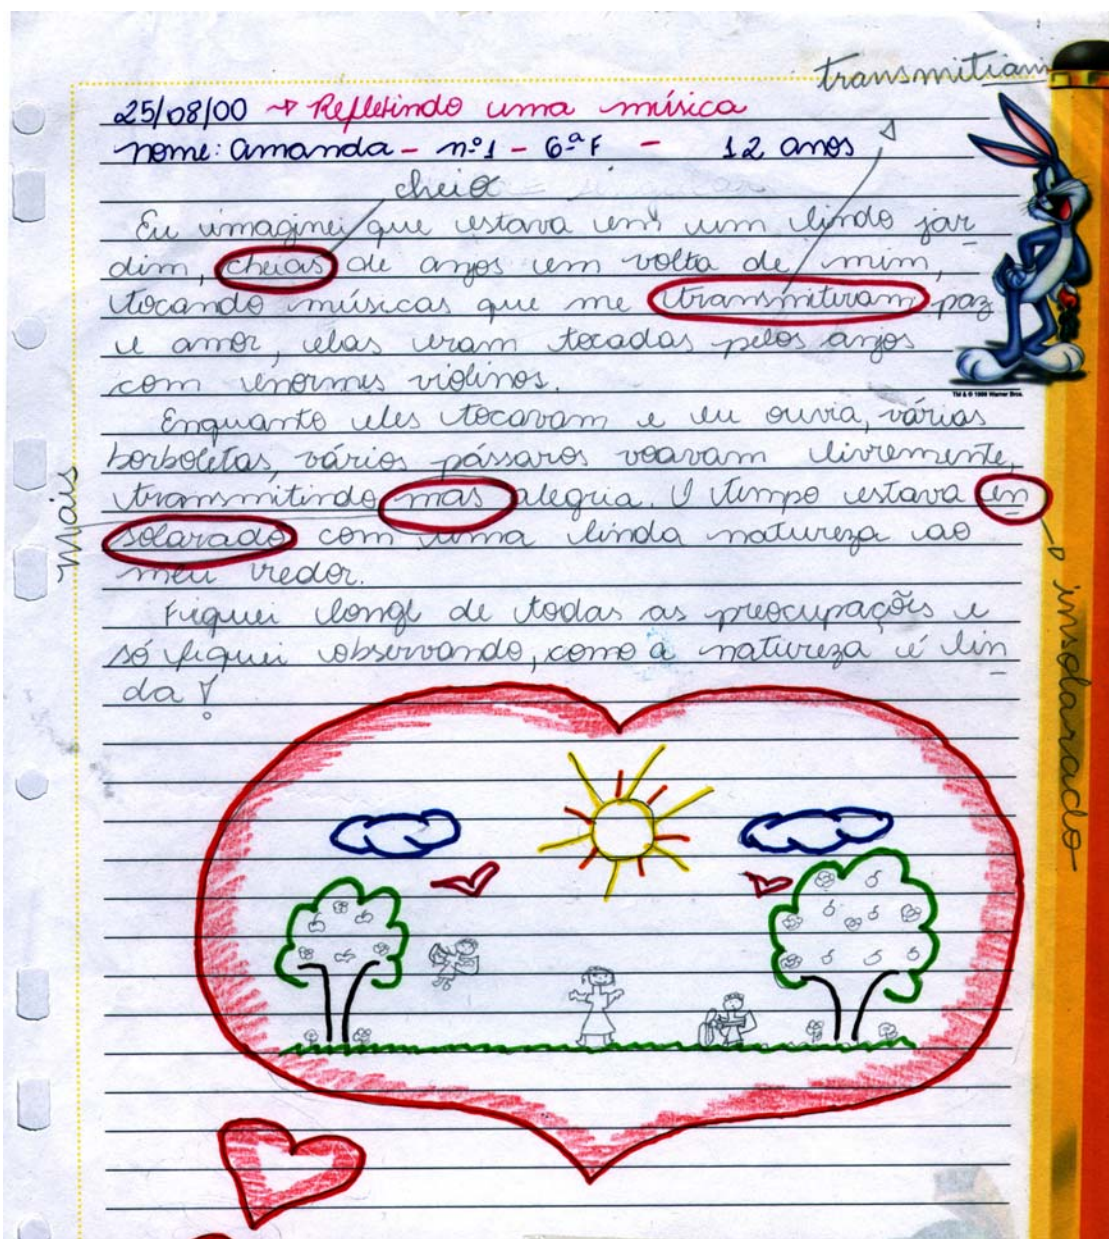 transmitiam
25/08/00 → Refletindo uma música
nome: Amanda - nº1 - 6ª F - 12 anos
cheio
Eu imaginei que estava em um lindo jar
dim, cheias de anjos em volta de mim,
tocando músicas que me transmitiram paz
e amor, elas eram tocadas pelos anjos
com enormes violinos.
TM & © 1999 Warner Bros.
Enquanto eles tocavam e eu ouvia, várias
borboletas, vários pássaros voavam livremente,
transmitindo mas alegria. O tempo estava en
solarado com uma linda natureza ao
meu redor.
mais
insolarado
Fiquei longe de todas as preocupações e
só fiquei observando, como a natureza é lin
da!